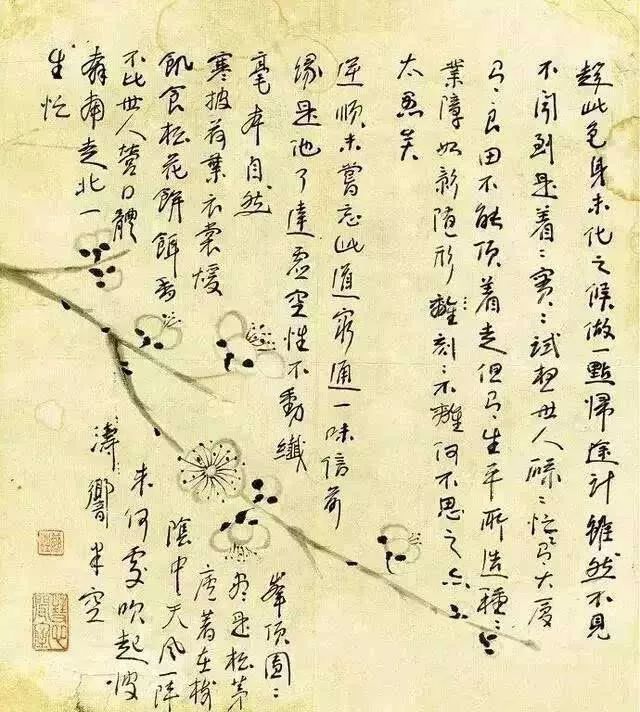 趁此色身未化之候做一點歸途計雖然不見
不闻到是着々實々試想世人碌々忙 大厦
良田不能頂着走但 生平所造種々
業障如影随形 刻々不離何不思之
太愚矣
逆順未嘗忘此道窮通一味信前
缘是他了達虛空性不動纖
毫本自然
寒披荷葉衣裳煖
飢食松花餅餌香
不比世人營口體
奔南走北一
生忙
峯頂團々
盡是松茅
著在樹
陰中天風一陣
來何處吹起波
濤響半空